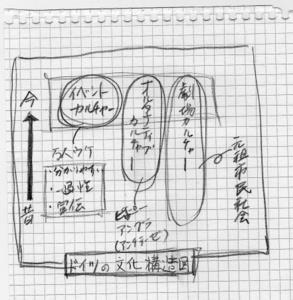 今
昔
イベント
カルチャー
オルタナティブ
カルチャー
劇場カルチャー
万人ウケ
・分かりやすい
・一過性
・宣伝
アングラ
(アンチテーゼ)
元祖市民社会
ドイツの文化構造図